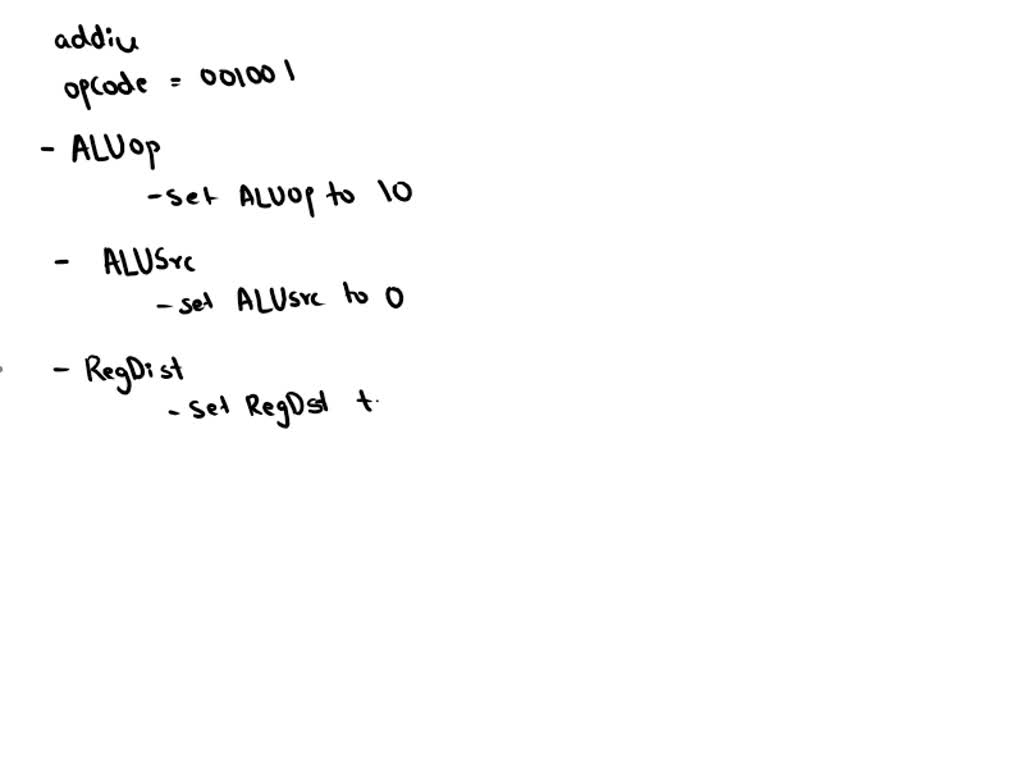 addiu
opcode = 001001
- ALUop
- set ALUop to 10
- ALUSrc
- set ALUsrc to 0
- RegDist
- Set RegDst t